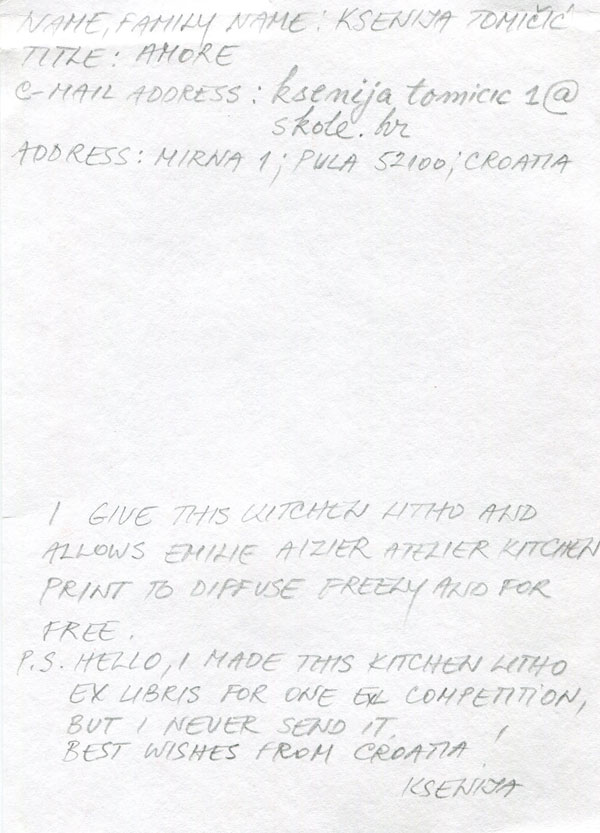 NAME, FAMILY NAME: KSENIJA TOMIČIĆ
TITLE: AMORE
E-MAIL ADDRESS: ksenija tomicic 1@
skole.hr
ADDRESS: MIRNA 1; PULA 52100; CROATIA
I GIVE THIS KITCHEN LITHO AND
ALLOWS EMILIE AIZIER ATELIER KITCHEN
PRINT TO DIFFUSE FREELY AND FOR
FREE.
P.S. HELLO, I MADE THIS KITCHEN LITHO
EX LIBRIS FOR ONE EXL COMPETITION,
BUT I NEVER SEND IT.
BEST WISHES FROM CROATIA!
KSENIJA